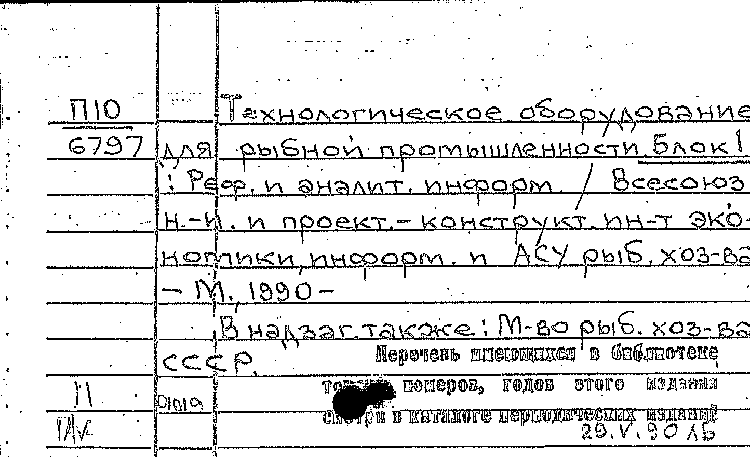 П10 Технологическое оборудование
6797 для рыбной промышленности. Блок 1
: Реф. и аналит. информ. / Всесоюз
н.-и. и проект.-конструкт. ин-т эко-
номики, информ. и АСУ рыб. хоз-ва
– М., 1990 –
В надзаг. также: М-во рыб. хоз-ва
СССР.
Перечень имеющихся в библиотеке
номеров, годов этого издания
смотри в каталоге периодических изданий
29.V.90 лб